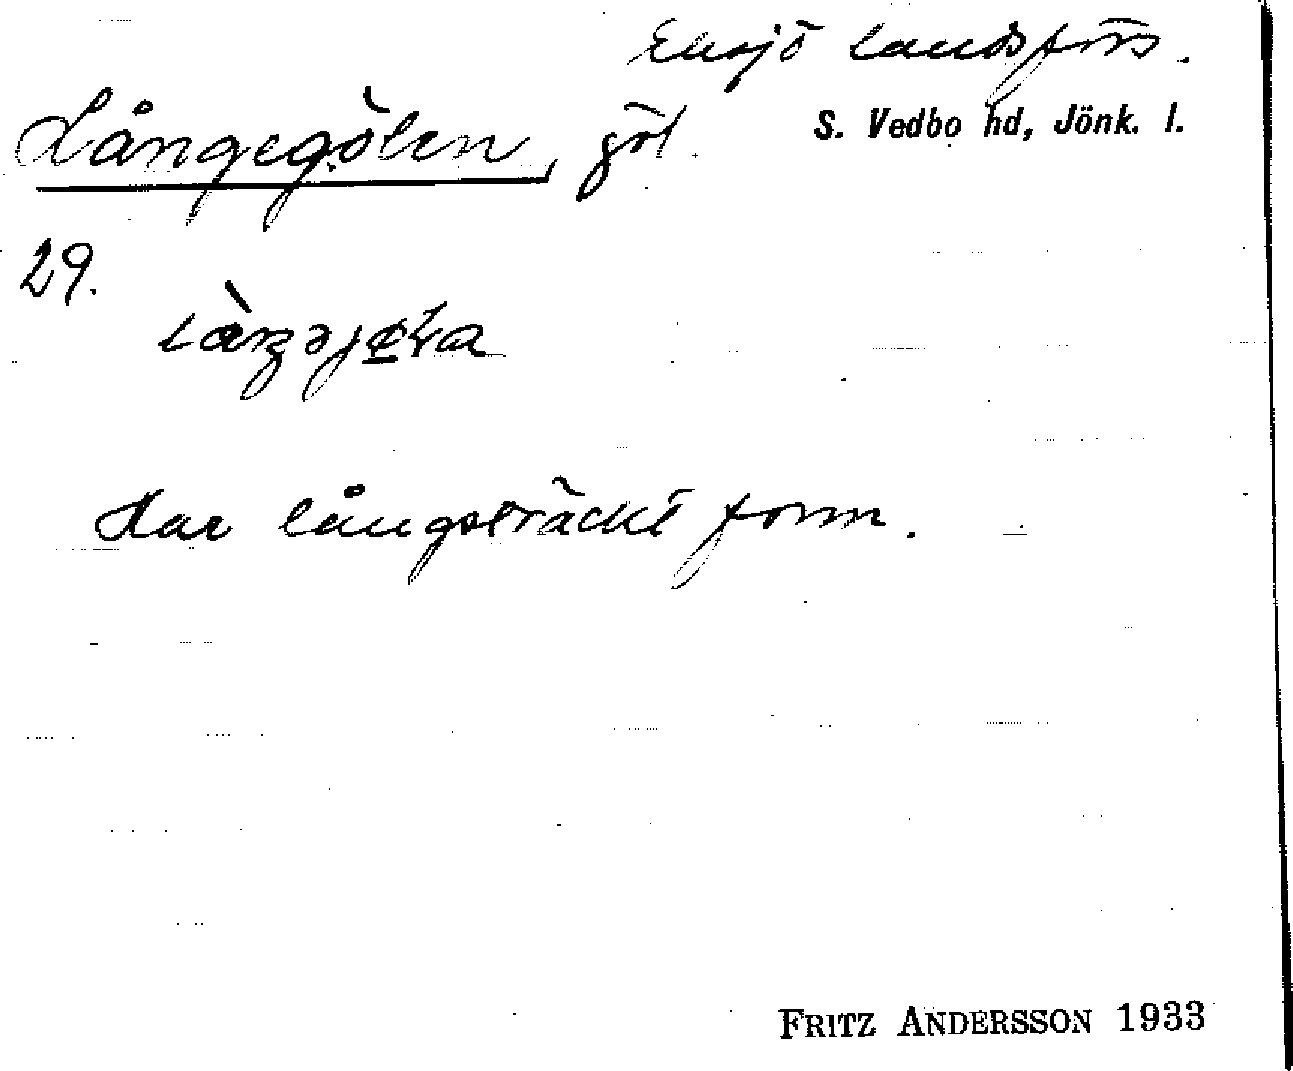 Eksjö landsförs.
Långegölen, göl.
S. Vedbo hd, Jönk. l.
29.
Har långsträckt form.
FRITZ ANDERSSON 1933